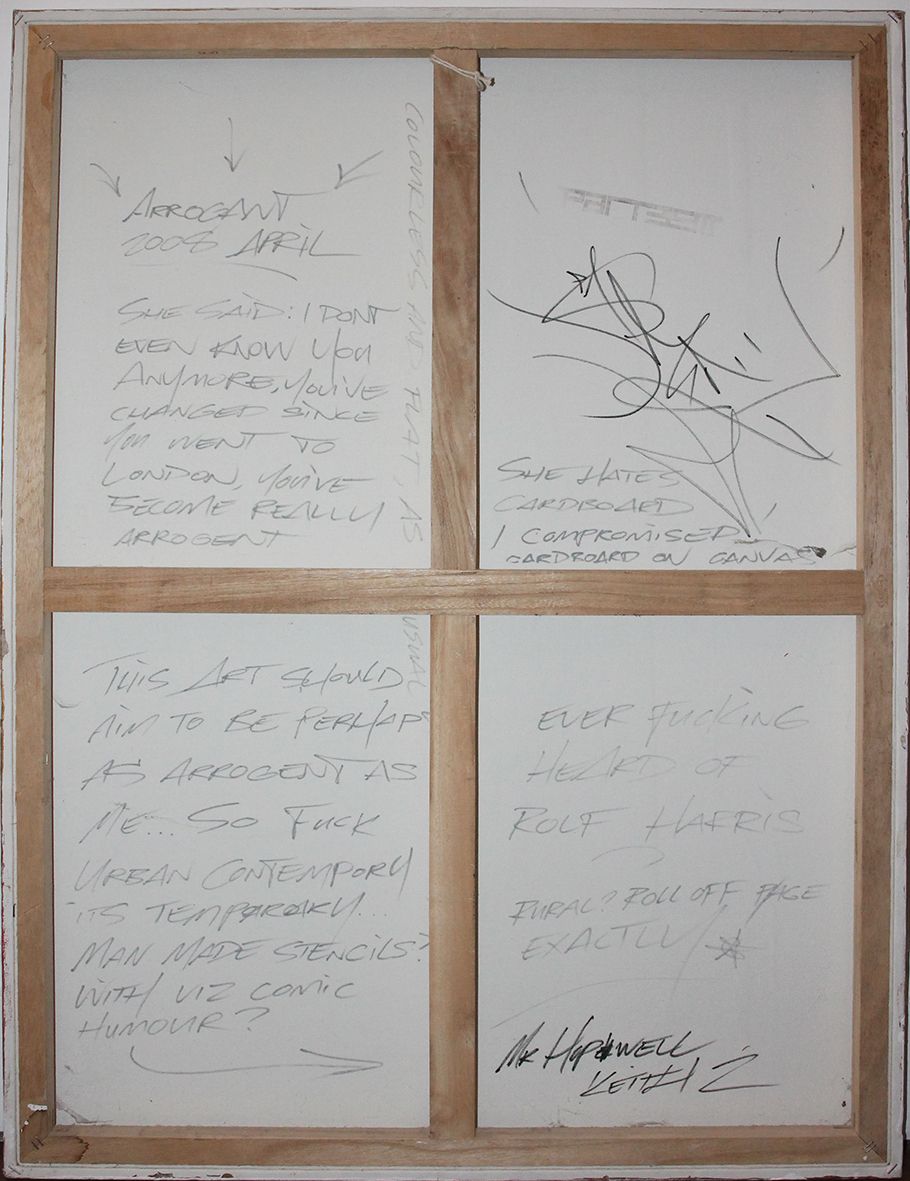 ARROGANT
2008 APRIL
SHE SAID: I DONT
EVEN KNOW YOU
ANYMORE, YOU'VE
CHANGED SINCE
YOU WENT TO
LONDON, YOU'VE
BECOME REALLY
ARROGENT
COLOURLESS AND FLAT, AS
USUAL
SHE HATES
CARDBOARD
I COMPROMISED
CARDBOARD ON CANVAS
THIS ART SHOULD
AIM TO BE PERHAPS
AS ARROGENT AS
ME... SO FUCK
URBAN CONTEMPORY
ITS TEMPORARY...
MAN MADE STENCILS?
WITH VIZ COMIC
HUMOUR?
EVER FUCKING
HEARD OF
ROLF HARRIS
RURAL? ROLL OFF PAGE
EXACTLY
MR HOPEWELL
KEITH 2